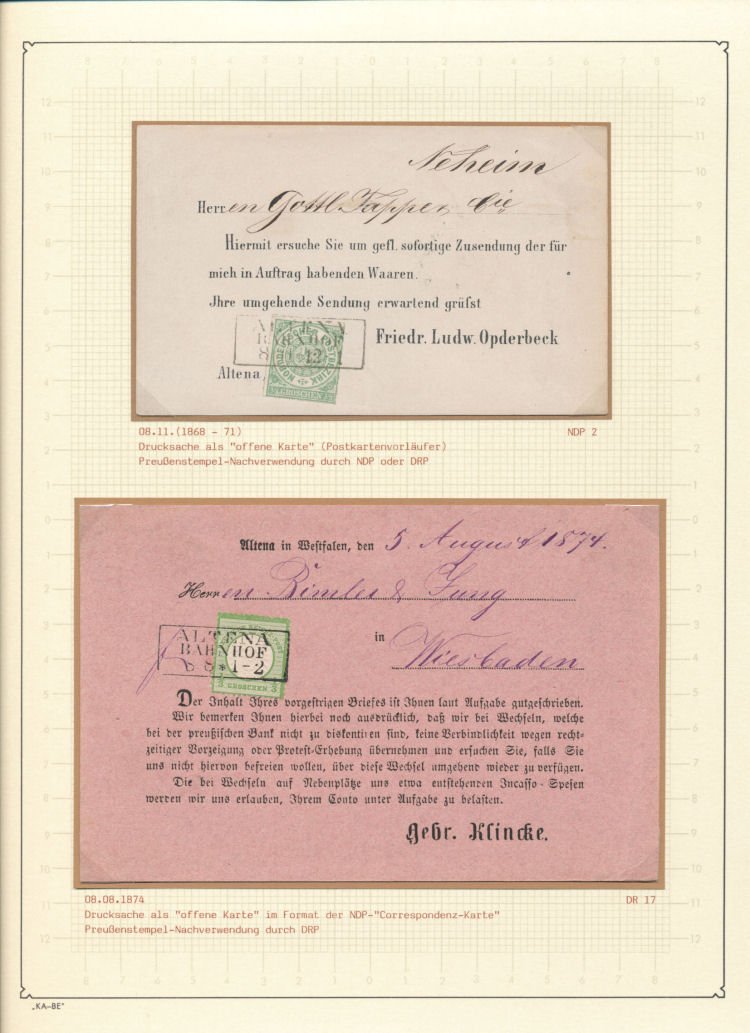 Neheim
Herren Gottl. Tapper, Cie
Hiermit ersuche Sie um gefl. sofortige Zusendung der für
mich in Auftrag habenden Waaren.
Jhre umgehende Sendung erwartend grüfst
ALTENA
BAHNHOF
8 11 12-1
NORDDEUTSCHER POSTBEZIRK
GROSCHEN
Friedr. Ludw. Opderbeck
Altena
08.11.(1868 - 71)
NDP 2
Drucksache als "offene Karte" (Postkartenvorläufer)
Preußenstempel-Nachverwendung durch NDP oder DRP
Altena in Westfalen, den 5. August 1874.
Herren Bimler & Jung
in Wiesbaden
ALTENA
BAHNHOF
8 8 * 1-2
GROSCHEN
Der Inhalt Ihres vorgestrigen Briefes ist Ihnen laut Aufgabe gutgeschrieben.
Wir bemerken Ihnen hierbei noch ausdrücklich, daß wir bei Wechseln, welche
bei der preußischen Bank nicht zu diskontiren sind, keine Verbindlichkeit wegen recht-
zeitiger Vorzeigung oder Protest-Erhebung übernehmen und ersuchen Sie, falls Sie
uns nicht hiervon befreien wollen, über diese Wechsel umgehend wieder zu verfügen.
Die bei Wechseln auf Nebenplätze uns etwa entstehenden Incasso-Spesen
werden wir uns erlauben, Ihrem Conto unter Aufgabe zu belasten.
Gebr. Klincke.
08.08.1874
DR 17
Drucksache als "offene Karte" im Format der NDP-"Correspondenz-Karte"
Preußenstempel-Nachverwendung durch DRP
„KA-BE"